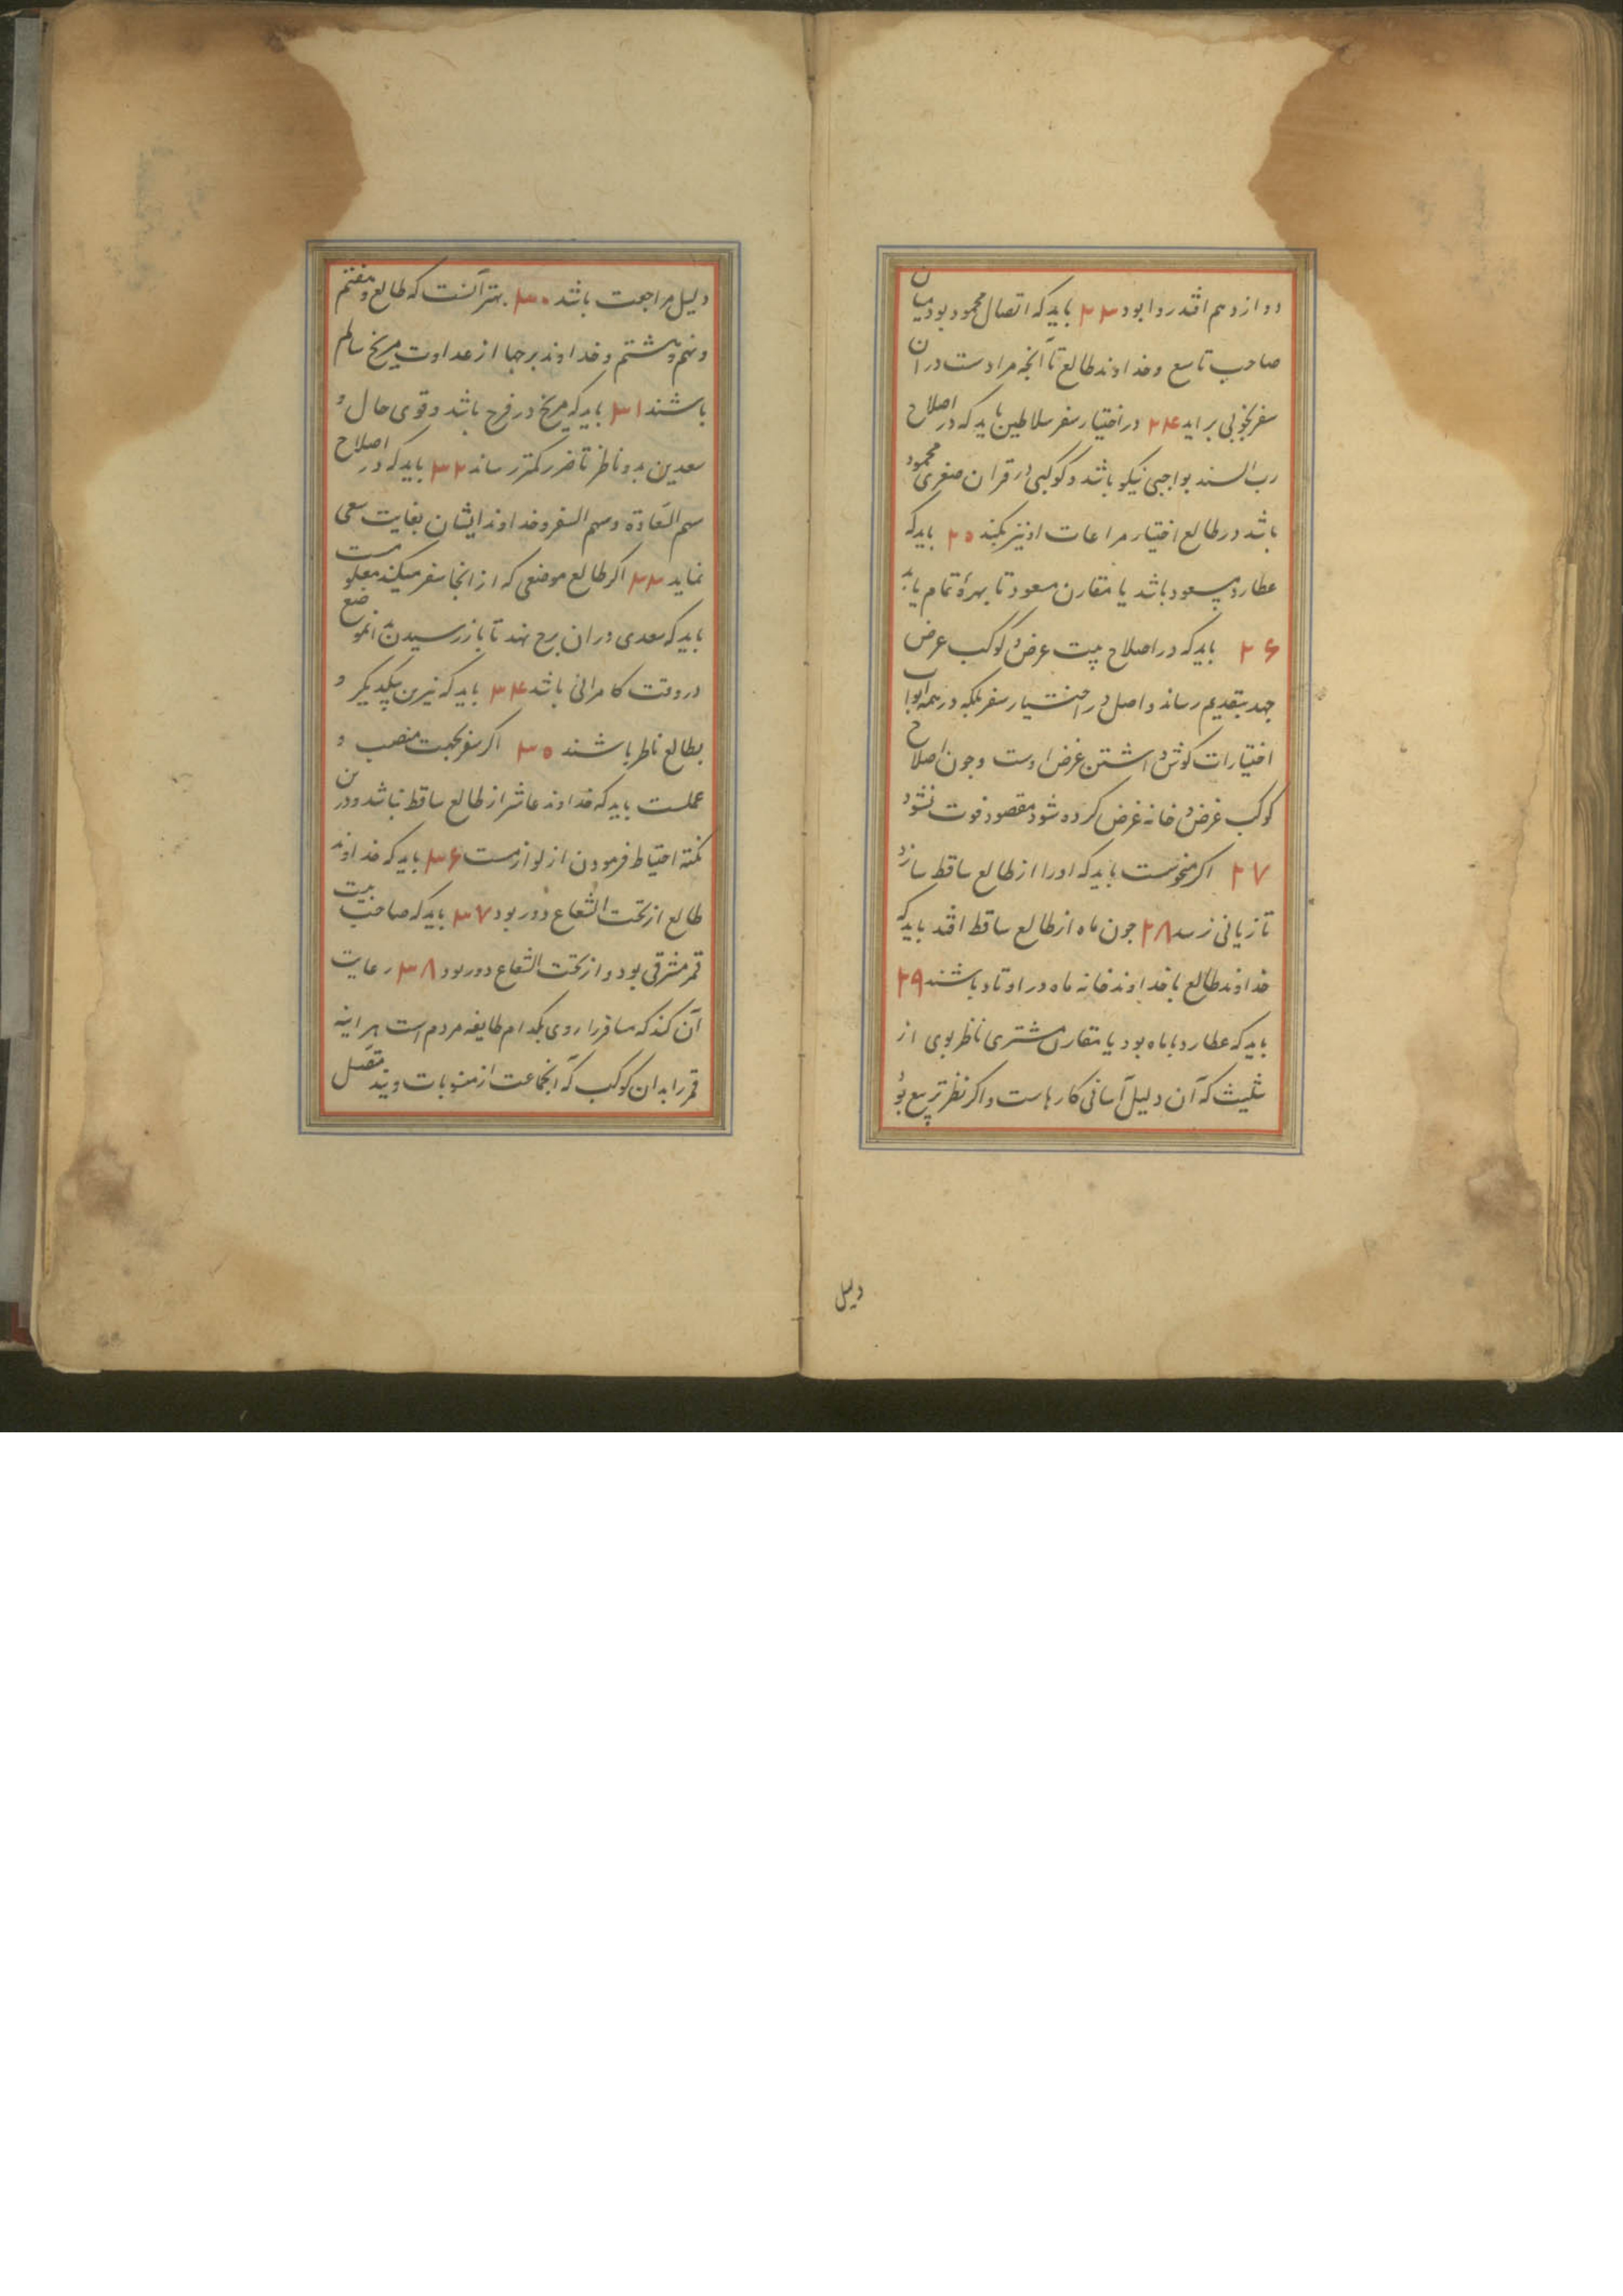 دوازدهم افتد روا بود ۲۳ باید که اتصال محمود بود میان
صاحب تاسع و خداوند طالع تا آنچه مرادست در آن
سفر بخوبی براید ۲۴ در اختیار سفر سلاطین باید که در اصلاح
رب السنه بواجبی نیکو باشد و کوکبی در قران صغری محمود
باشد در طالع اختیار مراعات او نیز بکند ۲۵ باید که
عطارد مسعود باشد یا مقارن مسعود تا بهرهٔ تمام یابد
۲۶ باید که در اصلاح بیت غرض و کوکب غرض
جهد بتقدیم رساند و اصل در اختیار سفر بلکه در همه ابواب
اختیارات کوش داشتن غرض اوست و چون اصلاح
کوکب غرض و خانه غرض کرده شود مقصود فوت نشود
۲۷ اکر منحوست باید که او را از طالع ساقط سازد
تا زیانی نرسد ۲۸ جون ماه از طالع ساقط افتد باید که
خداوند طالع با خداوند خانه ماه در اوتاد باشند ۲۹
باید که عطارد با ماه بود یا مقارن مشتری ناظر بوی از
تثلیث که آن دلیل آسانی کارهاست و اکر نظر تربیع بود
دلیل
دلیل مراجعت باشد ۳۰ بهتر آنست که طالع و هفتم
و نهم و هشتم و خداوند برجها از عداوت مریخ سالم
باشند ۳۱ باید که مریخ در فرح باشد و قوی حال و
سعدین بدو ناظر تا ضرر کمتر رساند ۳۲ باید که در اصلاح
سهم السعادة و سهم السفر و خداوند ایشان بغایت سعی
نماید ۳۳ اکر طالع موضعی که از انجا سفر میکند معلومست
باید که سعدی در ان برج نهد تا باز رسیدن بدانموضع
در وقت کامرانی باشد ۳۴ باید که نیرین بیکدیکر و
بطالع ناظر باشند ۳۵ اکر سفر بجهت منصب و
عملست باید که خداوند عاشر از طالع ساقط نباشد و درین
نکته احتیاط فرمودن از لوازمست ۳۶ باید که خداوند
طالع از تحت الشعاع دور بود ۳۷ باید که صاحب بیت
قمر مشرقی بود و از تحت الشعاع دور بود ۳۸ رعایت
آن کند که مسافر را روی بکدام طایفه مردم است هراینه
قمر را بدان کوکب که انجماعت از منسوبات ویند متصل